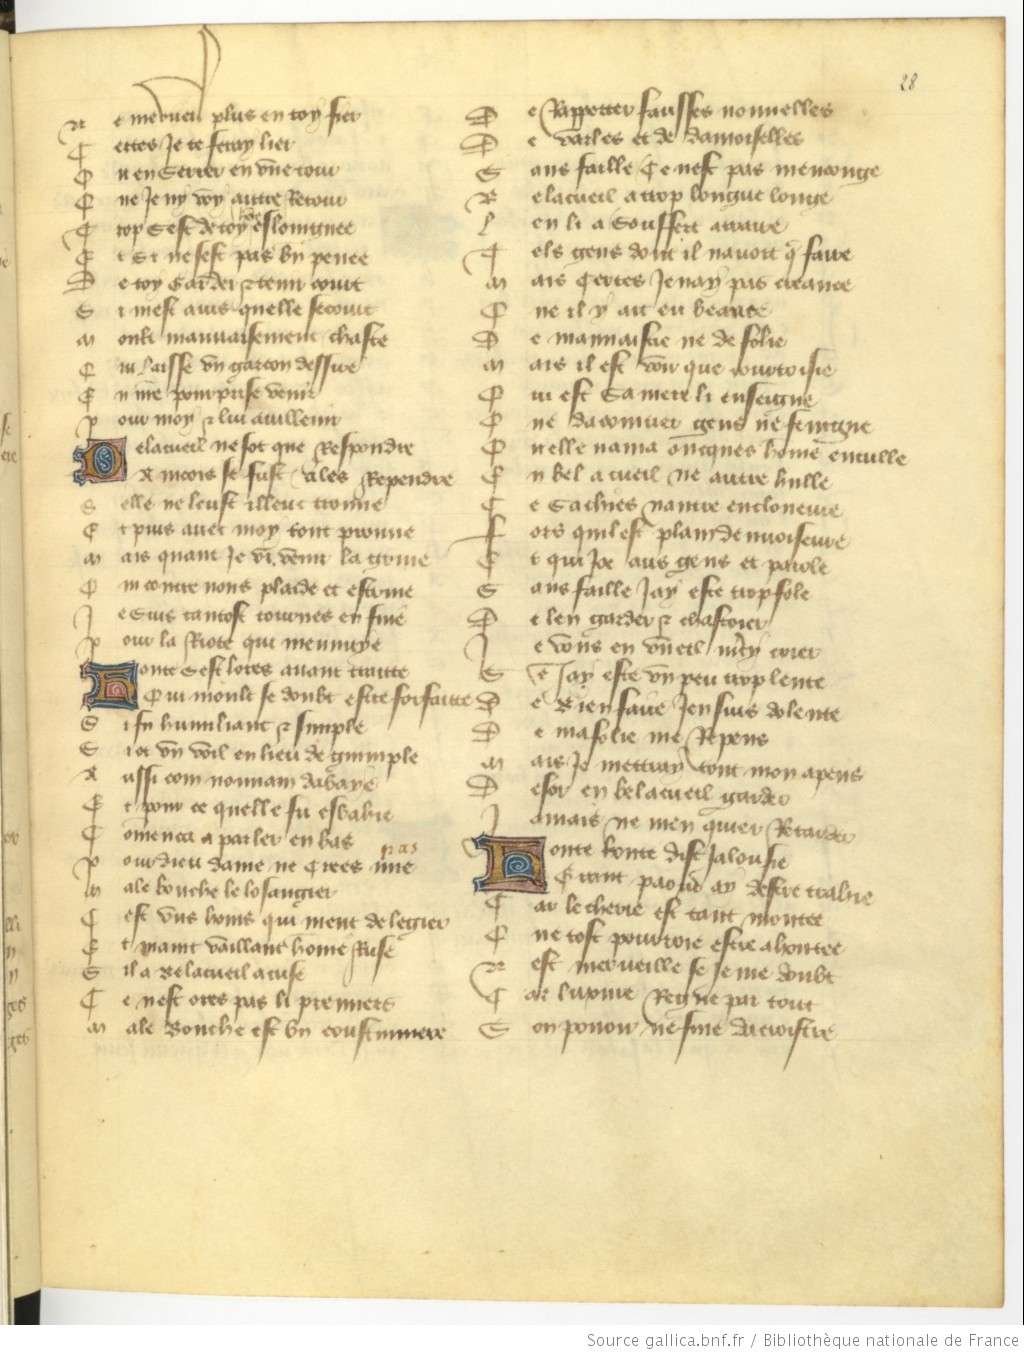 28
N e me vueil plus en toy fier
C ertes Je te feray lier
O u enserrer en vne tour
C ne Je ny voy autre Retour
T rop sest de toy hote eslongnee
E t si ne sest pas bn penee
D e toy garder & tenir court
S i mest auis quelle secourt
M oult mauuaisement chaste
Q ui laisse vn garcon dessire
E n me pourprise venir
P our moy & lui auillenir
B elacueil ne sot que Respondre
A incois se fust ales Repondre
S elle ne leust illeuc trouue
E t puis auec moy tout prouue
M ais quant Je vi venir la griue
Q ui contre nous plaide et estriue
J e suis tantost tournes en fuie
P our la Riote qui mennuye
H onte sest lores auant traitte
Q ui moult se doubt estre forfaitte
S i fu humiliant & simple
S i ot vn voil en lieu de guimple
A ussi com nonnain dabaye
E t pour ce quelle fu esbahie
C omenca a parler en bas
P our dieu dame ne crees mie pas
M ale bouche le losangier
C est vns homs qui ment de legier
E t maint vaillant home Ruse
S il a Belacueil acuse
C e nest ores pas li premiers
M ale Bouche est bn coustumiere
D e Rapporter fausses nouuelles
D e varles et de damoiselles
S ans faille Ce nest pas menconge
B elacueil a trop longue longe
L en li a souffert atraire
T els gens dont il nauoit q faire
M ais certes Je nay pas creance
Q ne il y ait eu beance
D e mauuaistie ne de folie
M ais il est voir que courtoisie
Q ui est sa mere li enseigne
Q ne dacointier gens ne se
Q nelle nama oncques home entulle
E n bel acueil ne autre hulle
C e sachies nautre encloueure
F ors quil est plain denuoiseure
E t qui Joe aus gens et parole
S ans faille Jay este trop fole
D e len garder & chastoier
J e vous en vueil mcy crier
S e Jay este vn peu trop lente
D e Bien faire Jen suis dolente
D e ma folie me Repens
M ais Je mettray tout mon apens
D esor en bel acueil garder
J amais ne men quier Retarder
H onte honte dist Jalousie
Grant paour ay destre trahie
C ar lecherie est tant montee
Q ne tost pourroie estre ahontee
N est merueille se Je me doubt
C ar luxure Regne par tout
S on pouoir ne fine dacroistre